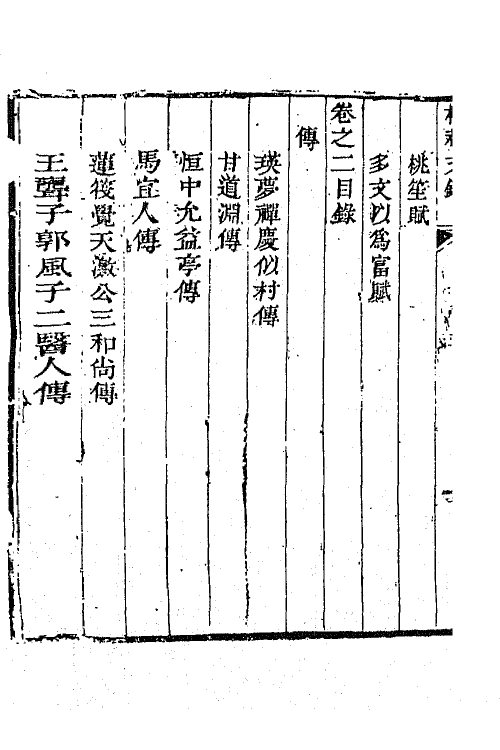 桃笙賦
多文以為富賦
卷之二目錄
傳
瑛夢禪慶似村傳
甘道淵傳
恒中允益亭傳
馬宜人傳
蓮筏覺天澈公三和尚傳
王聾子郭風子二醫人傳